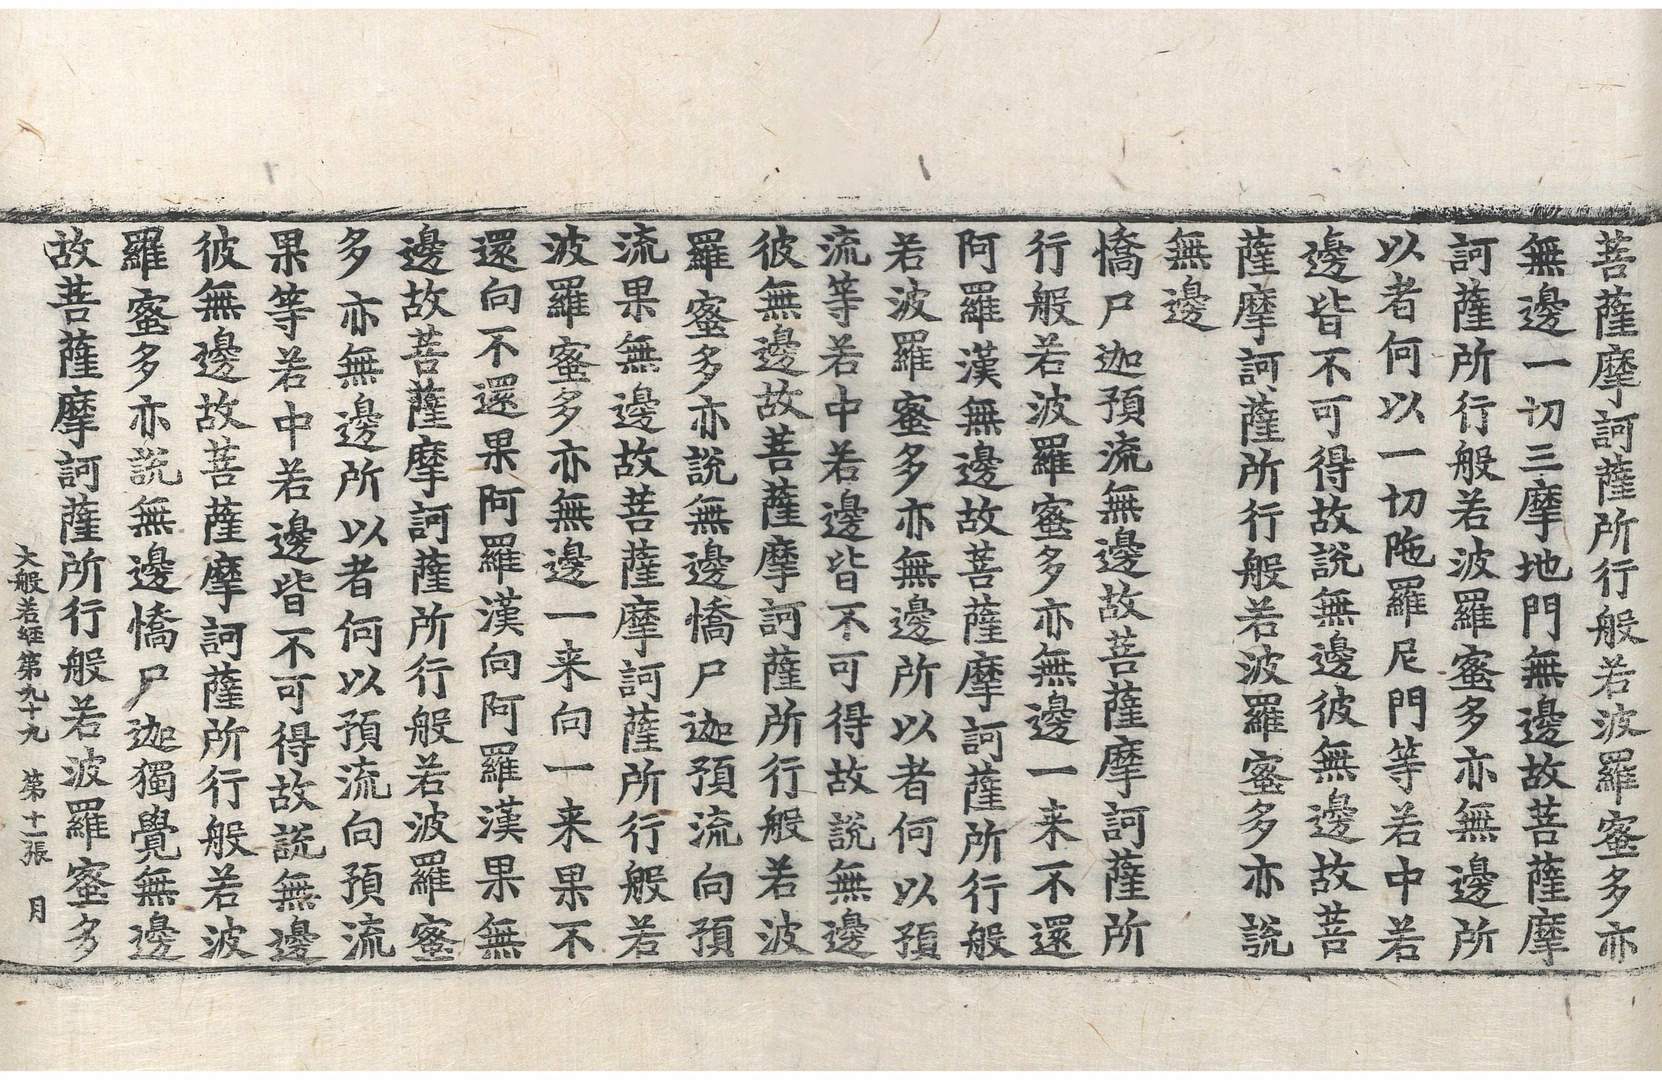 菩薩摩訶薩所行般若波羅蜜多亦
無邊一切三摩地門無邊故菩薩摩
訶薩所行般若波羅蜜多亦無邊所
以者何以一切陁羅尼門等若中若
邊皆不可得故說無邊彼無邊故菩
薩摩訶薩所行般若波羅蜜多亦說
無邊
憍尸迦預流無邊故菩薩摩訶薩所
行般若波羅蜜多亦無邊一来不還
阿羅漢無邊故菩薩摩訶薩所行般
若波羅蜜多亦無邊所以者何以預
流等若中若邊皆不可得故說無邊
彼無邊故菩薩摩訶薩所行般若波
羅蜜多亦說無邊憍尸迦預流向預
流果無邊故菩薩摩訶薩所行般若
波羅蜜多亦無邊一来向一来果不
還向不還果阿羅漢向阿羅漢果無
邊故菩薩摩訶薩所行般若波羅蜜
多亦無邊所以者何以預流向預流
果等若中若邊皆不可得故說無邊
彼無邊故菩薩摩訶薩所行般若波
羅蜜多亦說無邊憍尸迦獨覺無邊
故菩薩摩訶薩所行般若波羅蜜多
大般若經第九十九 第十一張 月